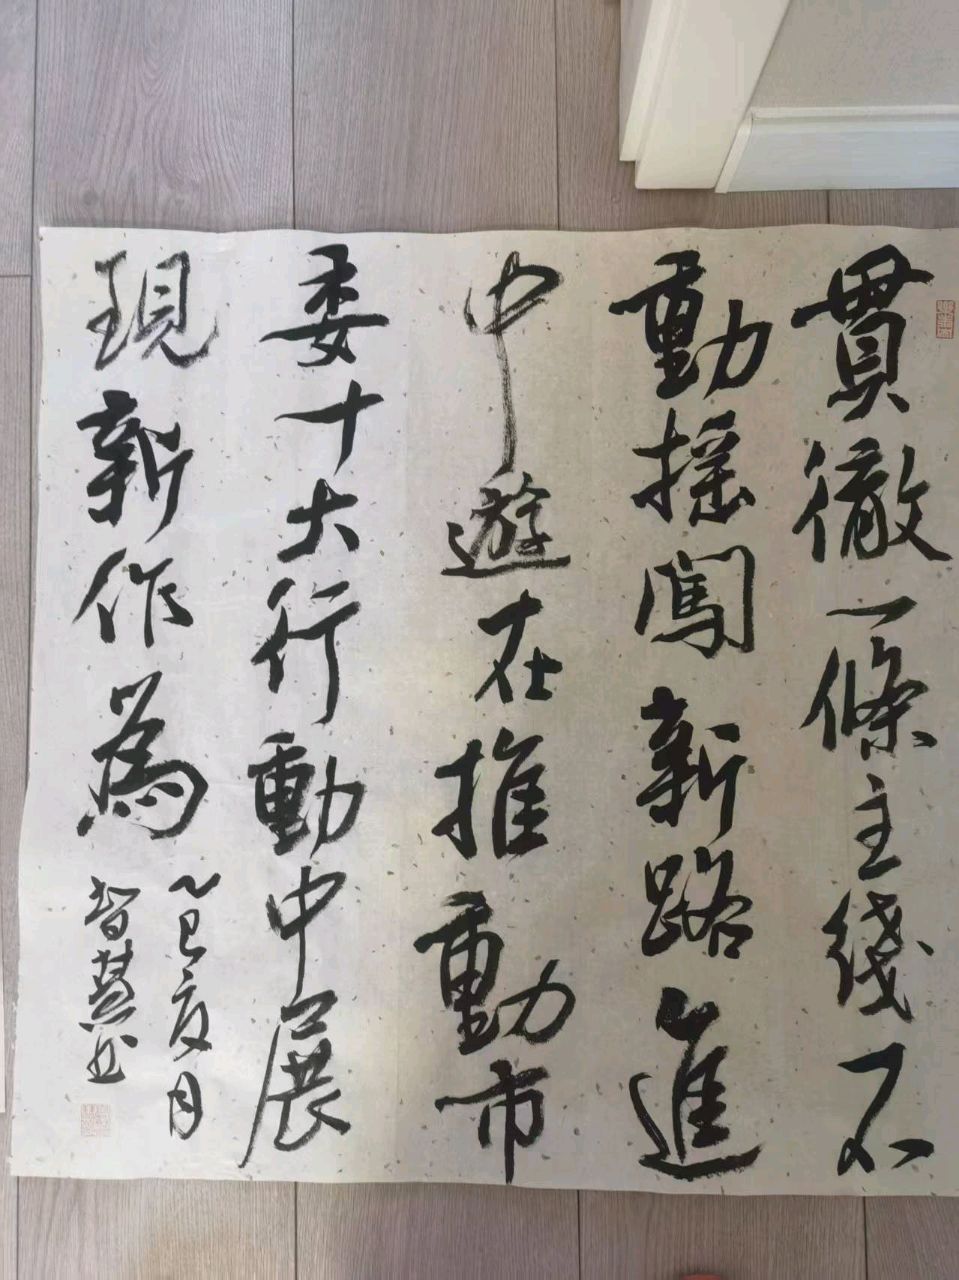 貫徹一條主线不
動摇闖新路進
中遊在推動市
委十大行動中展
現新作為
乙巳夏月
智慧书